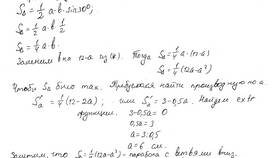 S₀ = ½ a·b·sin30°,
S₀ = ½ a·b·½
S₀ = ¼ a·b.
Заменим на 12-а из (*). Тогда S₀ = ¼ a·(12-a)
S₀ = ¼(12a-a²)
Чтобы S₀ было max. Требуется найти производную по а.
S₀' = ¼(12-2a); или S₀' = 3-0,5a. Найдем extr
функции. 3-0,5a=0
0,5a=3
a=3:0,5
a=6 см.
Заметим, что S₀ = ¼(12a-a²) - парабола с ветвями вниз.